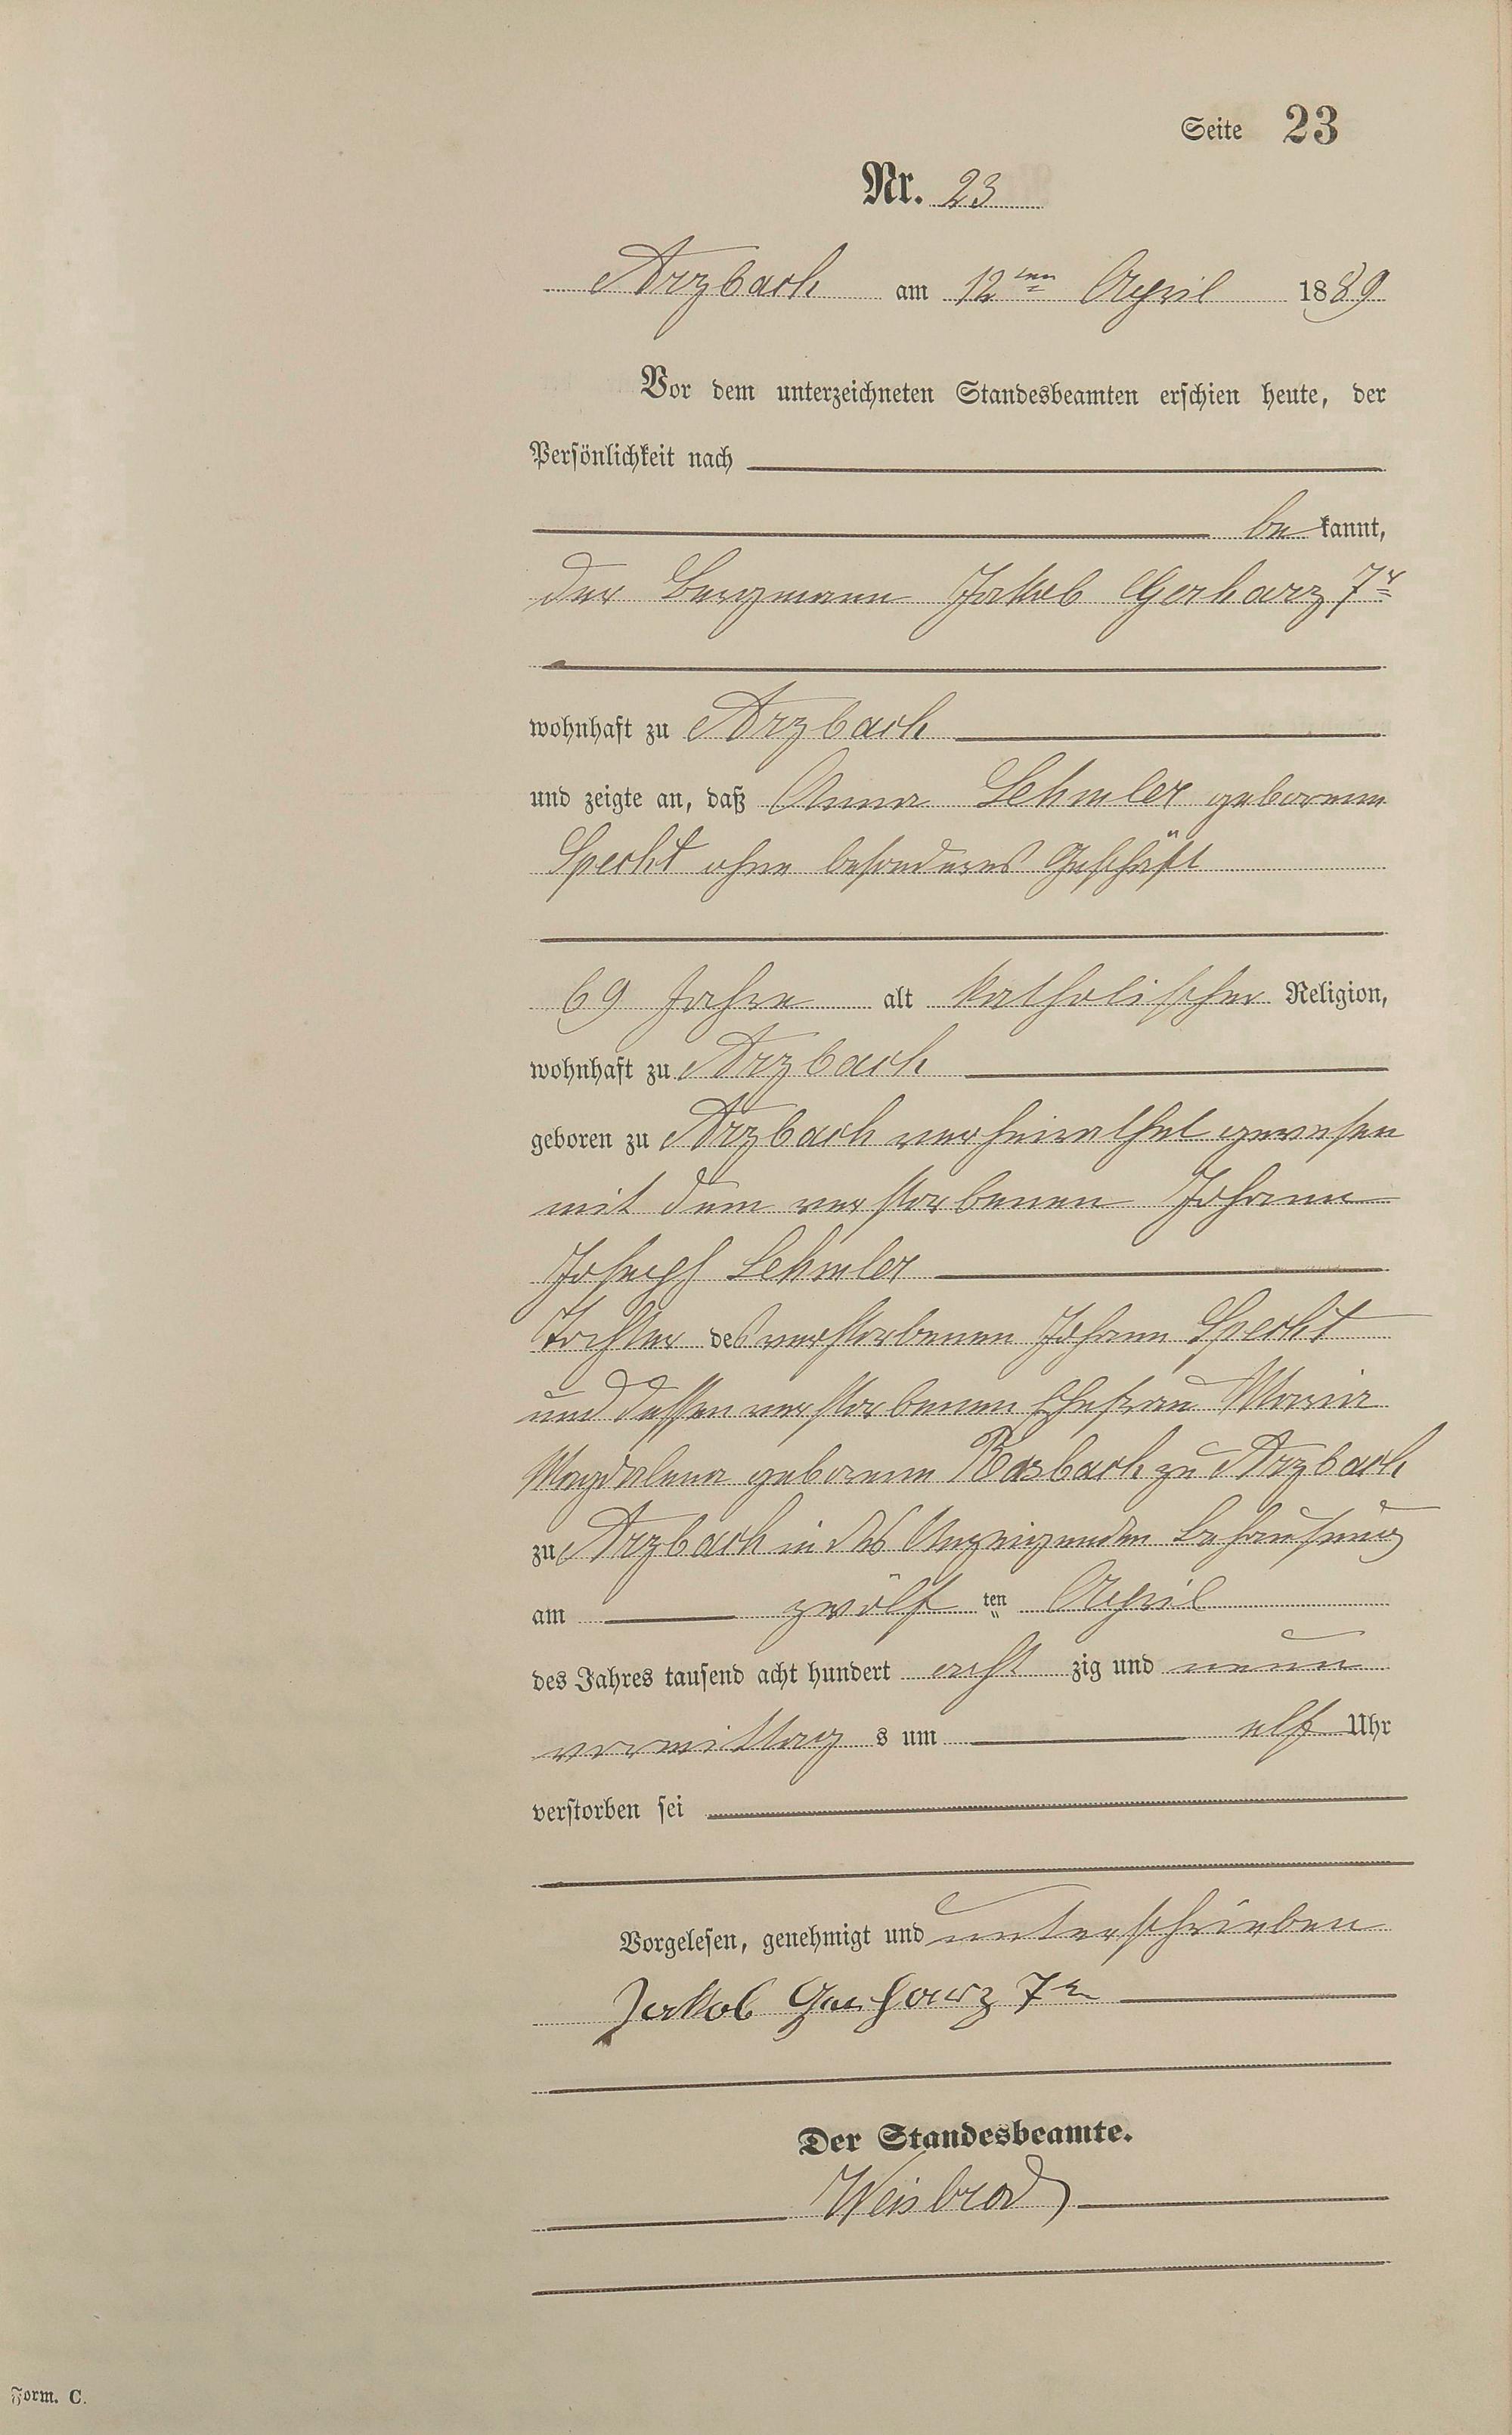 Seite 23
Nr. 23
Arzbach am 12ten April 1889
Vor dem unterzeichneten Standesbeamten erschien heute, der
Persönlichkeit nach
be kannt,
der Bergmann Jakob Gerharz 7r
wohnhaft zu Arzbach
und zeigte an, daß Anna Lehmler geborene
Specht ohne besonderes Geschäft
69 Jahre alt katholischer Religion,
wohnhaft zu Arzbach
geboren zu Arzbach verheirathet gewesen
mit dem verstorbenen Johann
Joseph Lehmler
Tochter des verstorbenen Johann Specht
und dessen verstorbenen Ehefrau Maria
Magdalena geborene Rosbach zu Arzbach
zu Arzbach in des Anzeigenden Behausung
am zwölf ten April
des Jahres tausend acht hundert acht zig und neun
vormittag s um elf Uhr
verstorben sei
Vorgelesen, genehmigt und unterschrieben
Jakob Gerharz 7r
Der Standesbeamte.
Weisbrod
Form. C.